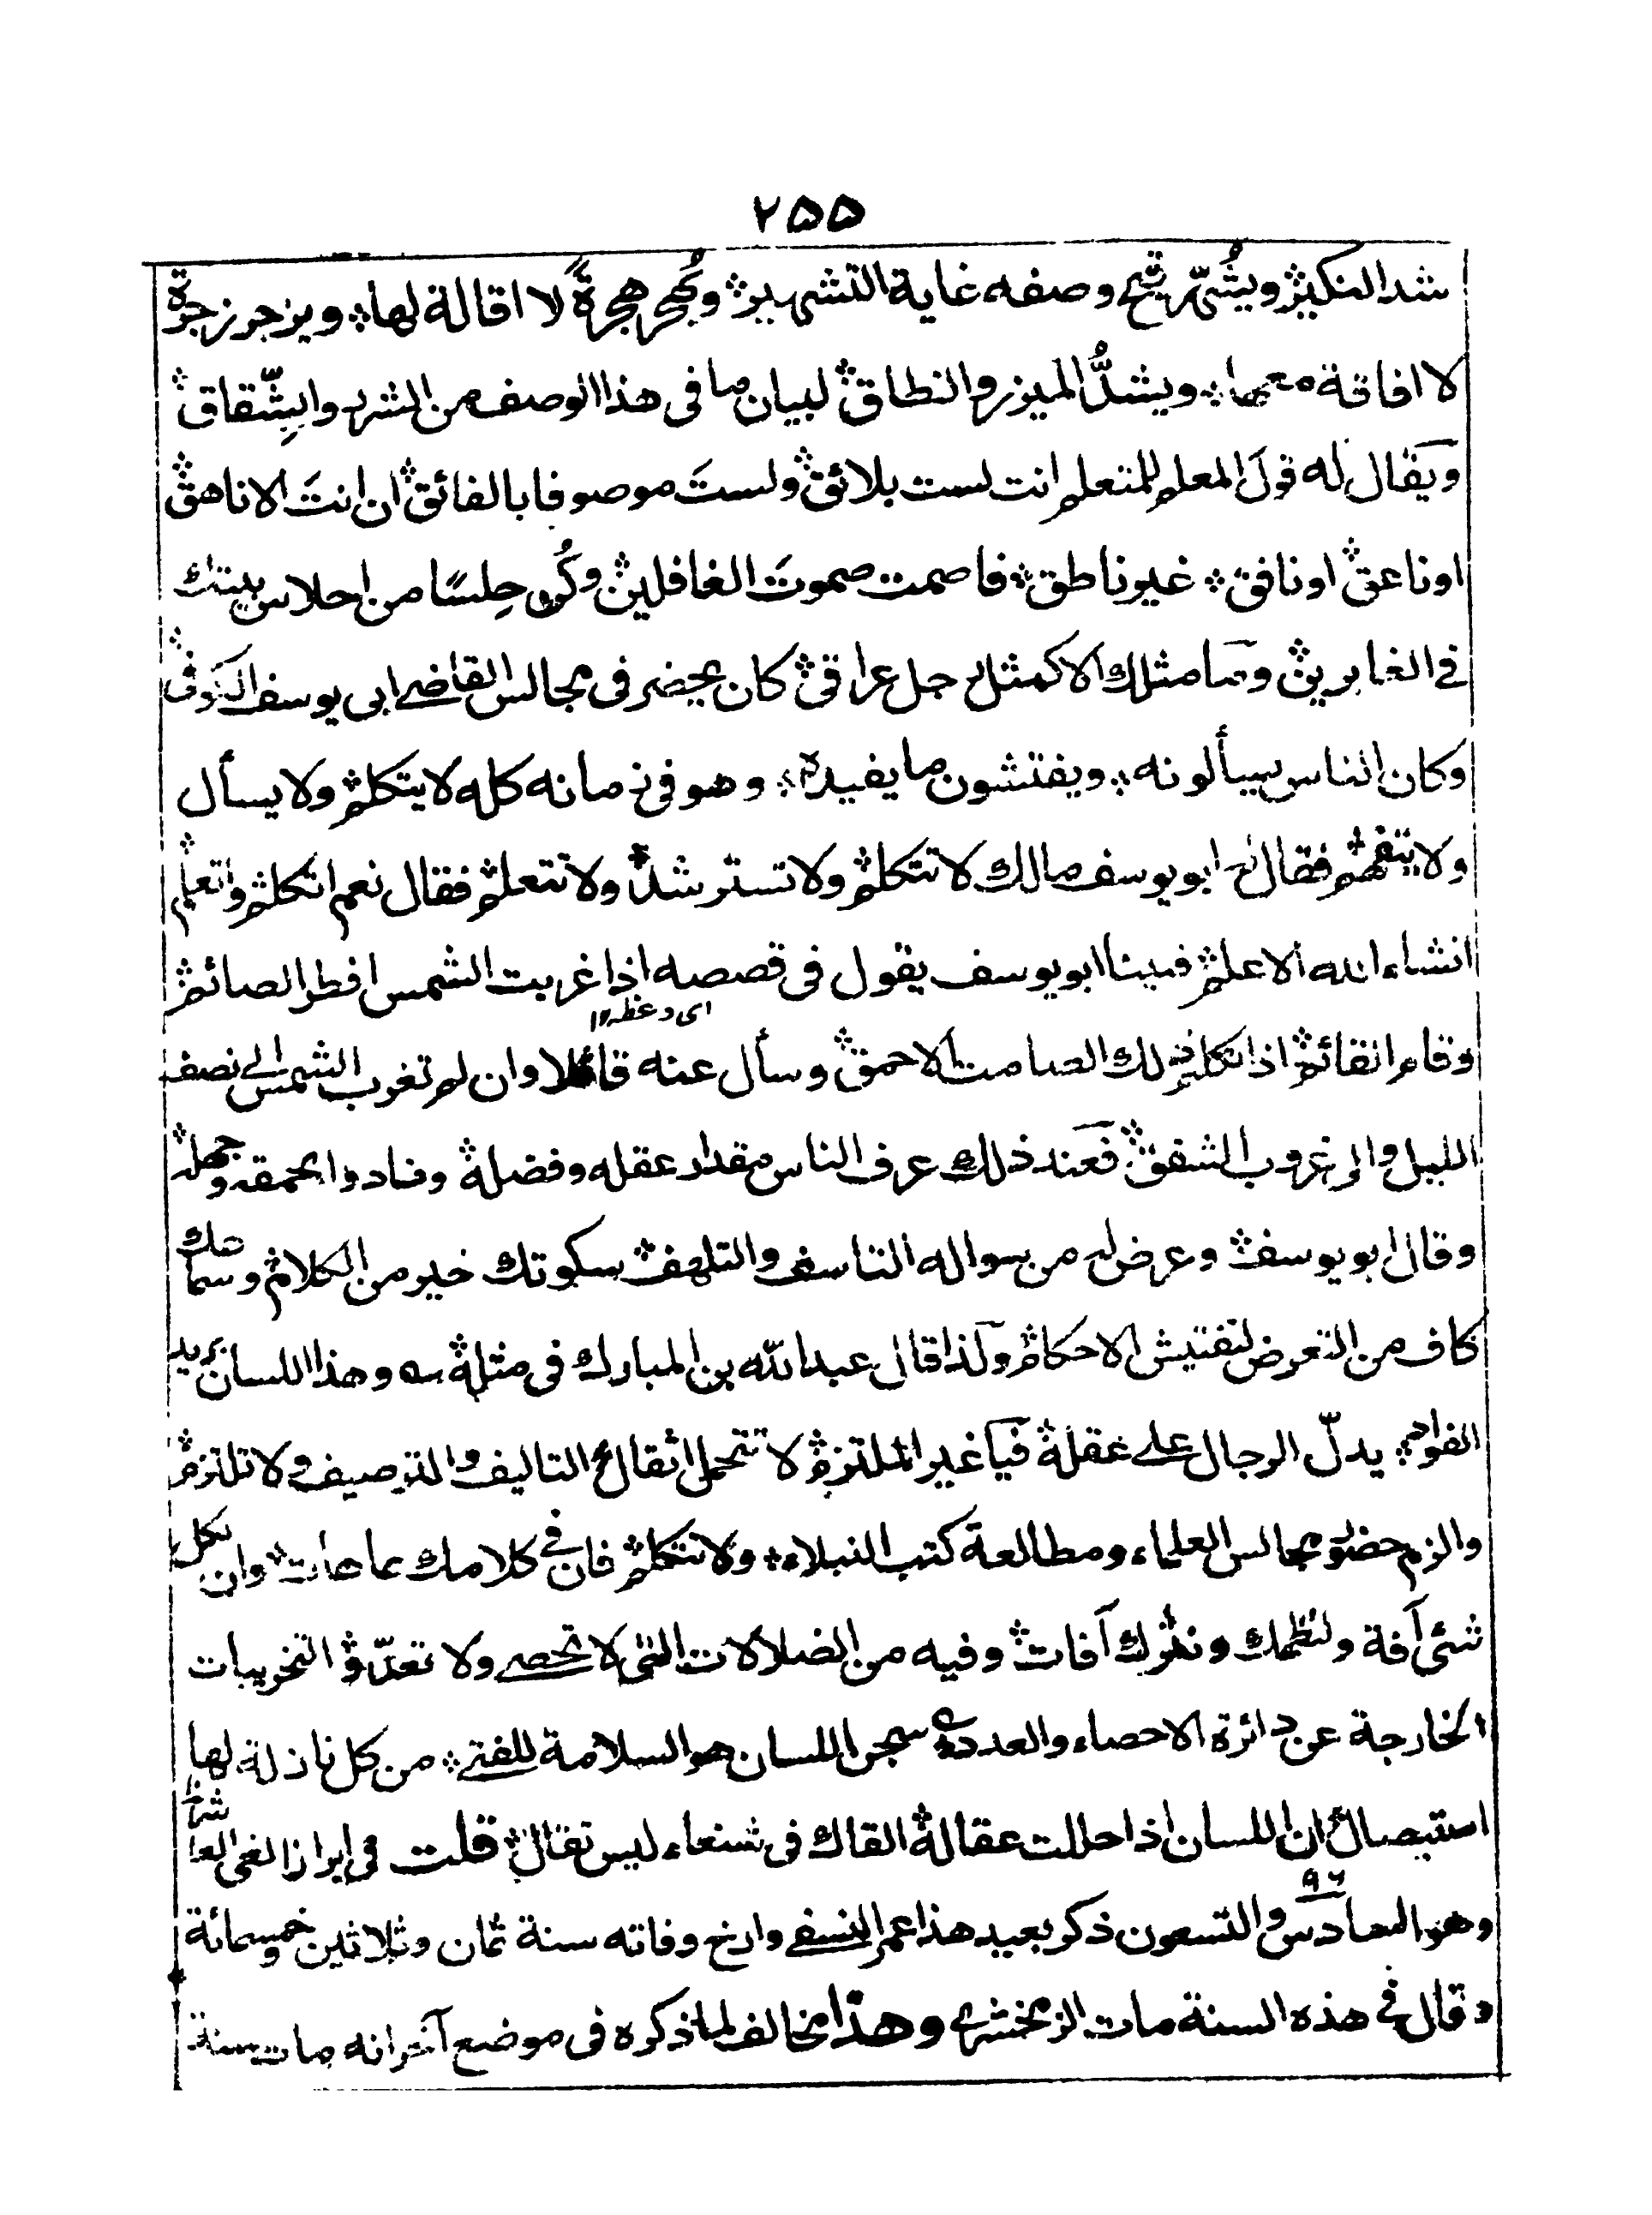 ٢٥٥
شد النكير ويشهر قبح وصفه غاية التشهير ويُهجر هجرةً لا اقالة لها ويزجر زجرة
لا افاقة معها ويشدُّ الميزر والنطاق لبيان ما في هذا الوصف من الشر والشِّقاق
ويقال له قولَ المعلم للمتعلم انت لست بلائق ولستَ موصوفا بالفائق ان انتَ الا ناهق
او ناعق او نافق غير ناطق فاصمت صموتَ الغافلين وكُن حِلسًا من احلاس بيتك
في الغابرين وما مثلك الا كمثل رجل عراقي كان يحضر في مجالس القاضي ابي يوسف الكوفي
وكان الناس يسألونه ويفتشون ما يفيده وهو في زمانه كله لا يتكلم ولا يسأل
ولا يتفهم فقال له ابو يوسف مالك لا تتكلم ولا تسترشد ولا تتعلم فقال نعم اتكلم واتعلم
انشاء الله الاعلم فبينا ابو يوسف يقول في قصصه اذا غربت الشمس افطر الصائم
اى وعظه ١٢
وقام القائم اذا تكلم ذلك الصامت الاحمق وسأل عنه قائلا وان لم تغرب الشمس الى نصف
الليل والى غروب الشفق فعند ذلك عرف الناس مقدار عقله وفضله ونادوا بحمقه وجهله
وقال ابو يوسف وعرض له من سواله التاسف والتلهف سكوتك خير من الكلام وسماعك
كاف من التعرض لتفتيش الاحكام ولذا قال عبد الله بن المبارك في مثله وهذا اللسان بريد
الفواد يدلّ الرجال على عقله فيا غير الملتزم لا تتحمل اثقال التاليف والترصيف ولا تلتزم
والزم حضور مجالس العلماء ومطالعة كتب النبلاء ولا تتكلم فان في كلامك عاهات وان لكل
شئ آفة ولنظمك ونثرك آفات وفيه من الضلالات التى لا تحصى ولا تعدّ والتخريبات
الخارجة عن دائرة الاحصاء والعدد سجن اللسان هو السلامة للفتى من كل نازلة لها
استيصال ان اللسان اذا حللت عقاله القاك في شنعاء ليس تقال قلت في ابراز الغى العاشر
٩٦
وهو السادس والتسعون ذكر بعيد هذا عمر النسفى وارخ وفاته سنة ثمان وثلاثين وخمسمائة
وقال في هذه السنة مات الزمخشرى وهذا مخالف لما ذكره في موضع آخر انه مات سنة